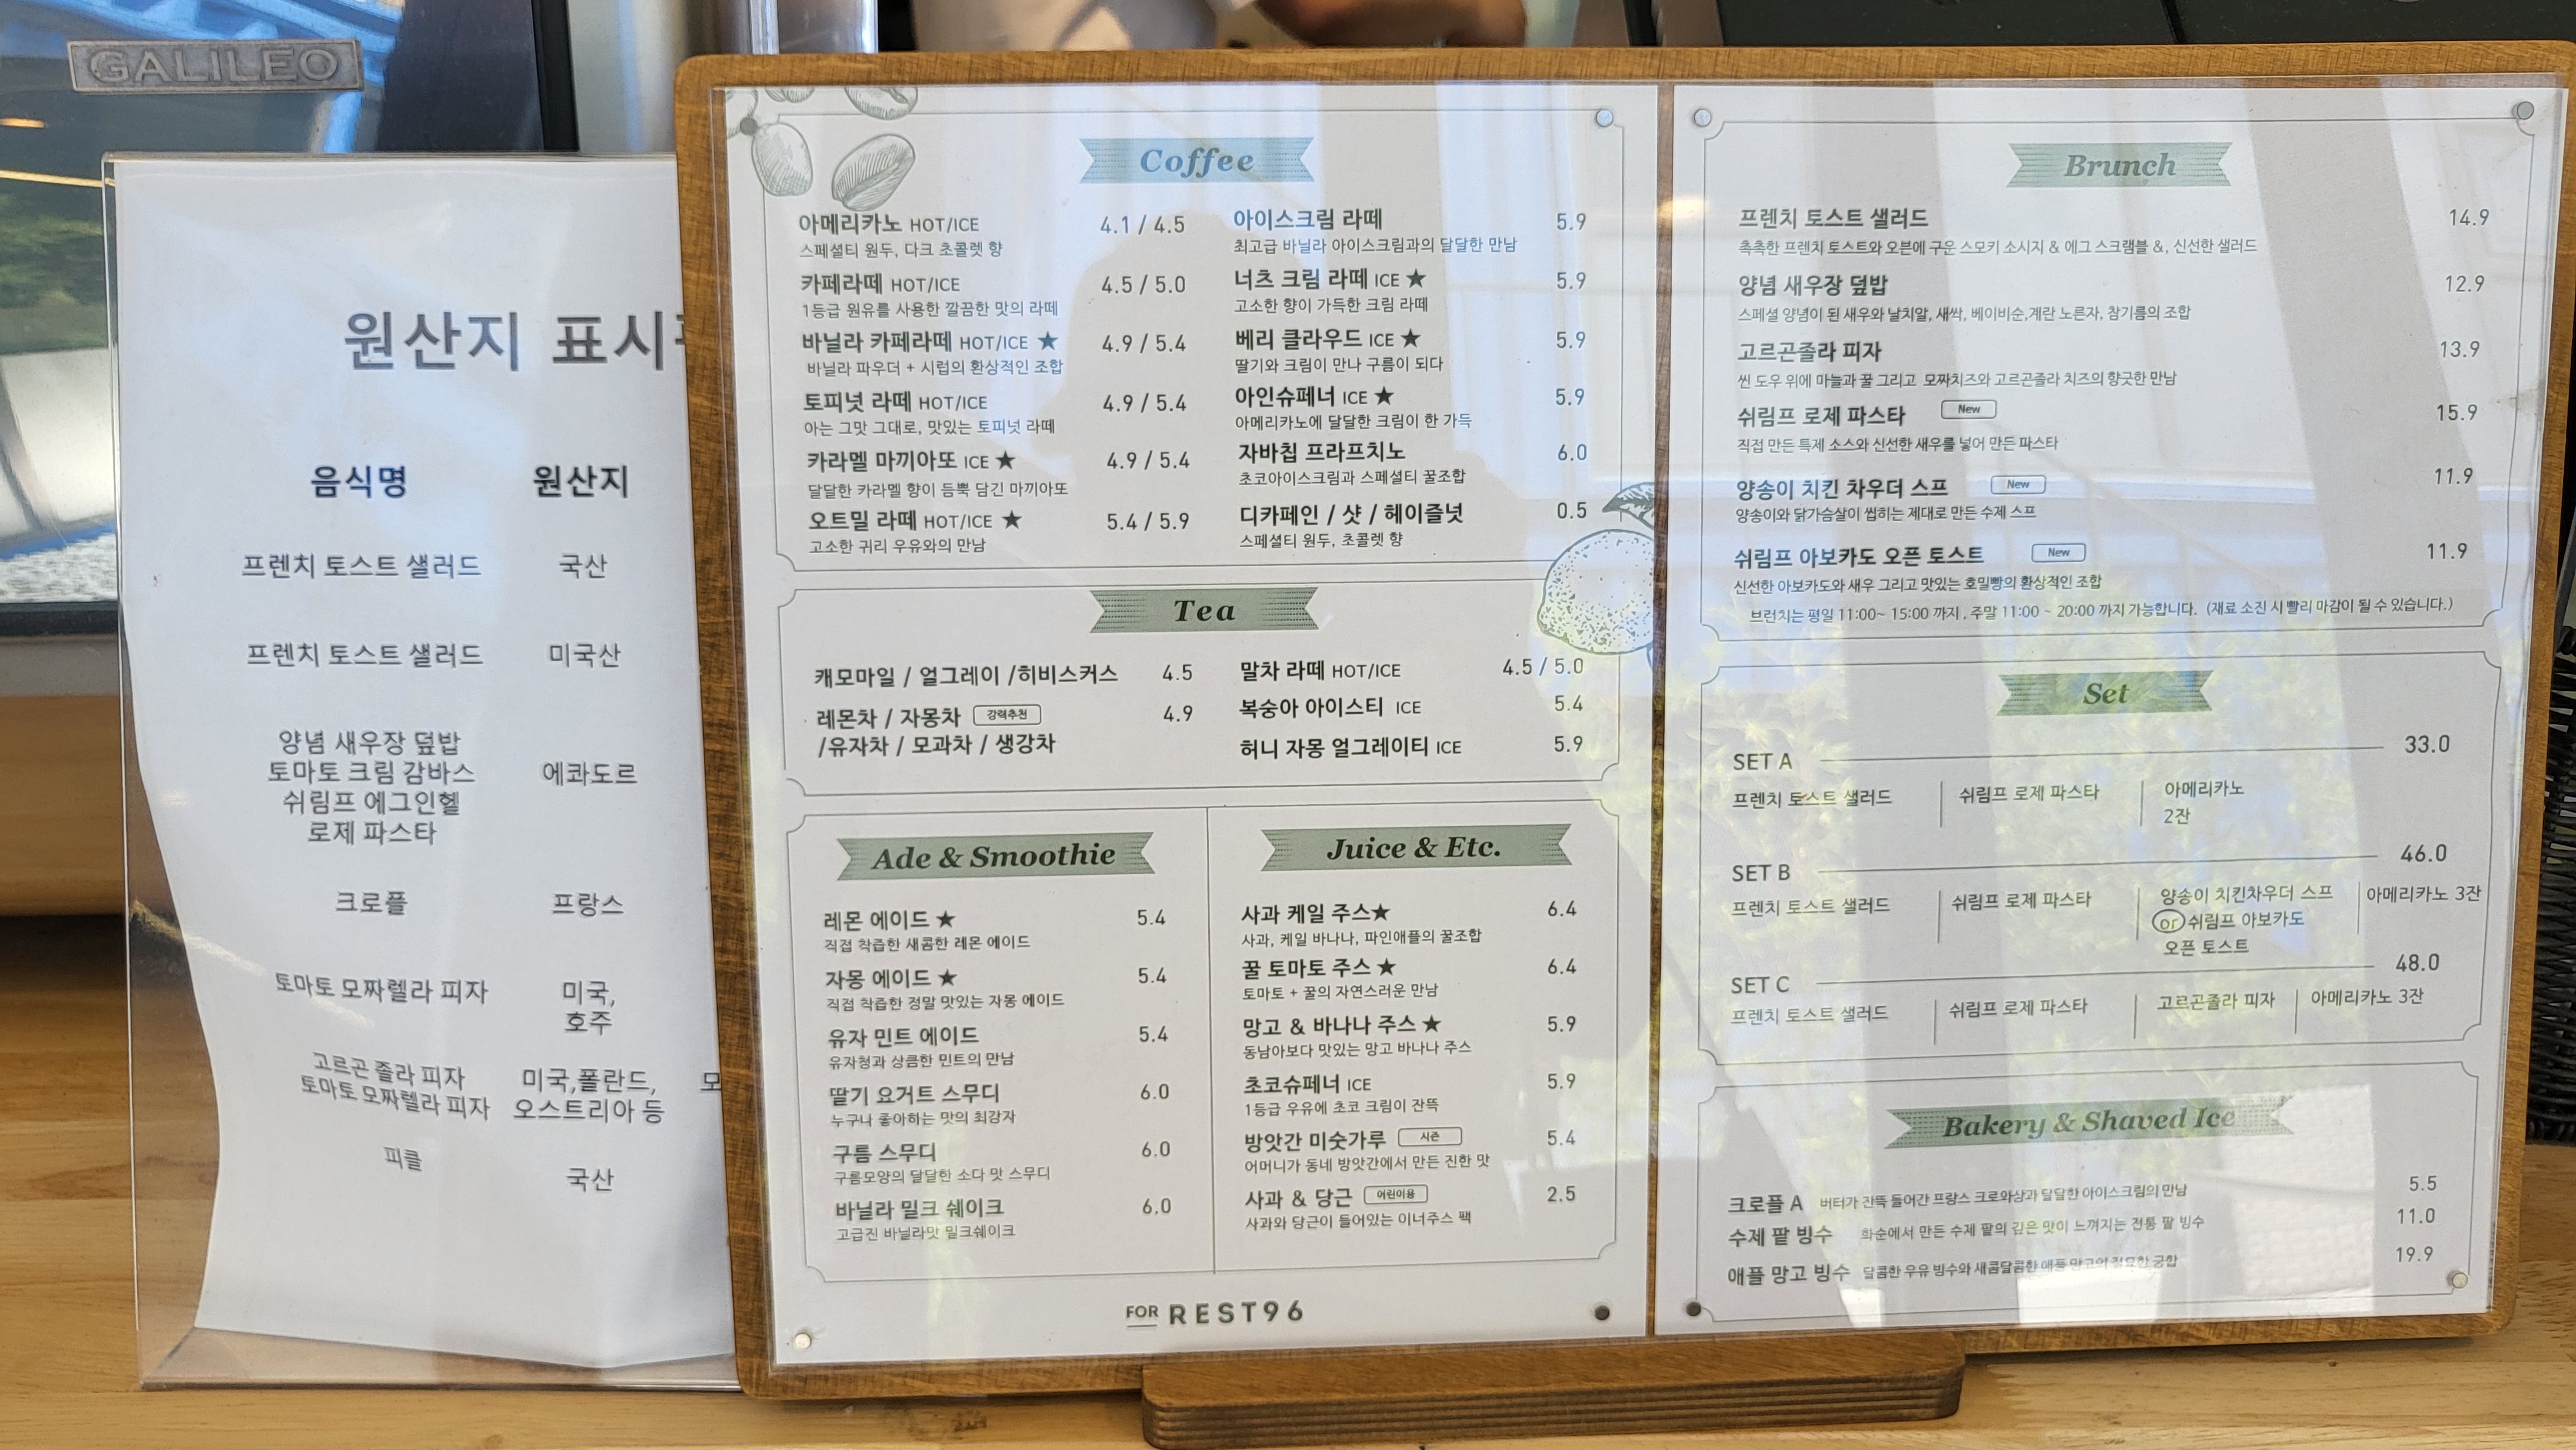 GALILEO
원산지 표시
음식명 원산지
프렌치 토스트 샐러드 국산
프렌치 토스트 샐러드 미국산
양념 새우장 덮밥
토마토 크림 감바스
쉬림프 에그인헬
로제 파스타
에콰도르
크로플 프랑스
토마토 모짜렐라 피자 미국,
호주
고르곤 졸라 피자
토마토 모짜렐라 피자
미국,폴란드,
오스트리아 등
모
피클 국산
Coffee
아메리카노 HOT/ICE 4.1 / 4.5
스페셜티 원두, 다크 초콜렛 향
카페라떼 HOT/ICE 4.5 / 5.0
1등급 원유를 사용한 깔끔한 맛의 라떼
바닐라 카페라떼 HOT/ICE ★ 4.9 / 5.4
바닐라 파우더 + 시럽의 환상적인 조합
토피넛 라떼 HOT/ICE 4.9 / 5.4
아는 그맛 그대로, 맛있는 토피넛 라떼
카라멜 마끼아또 ICE ★ 4.9 / 5.4
달달한 카라멜 향이 듬뿍 담긴 마끼아또
오트밀 라떼 HOT/ICE ★ 5.4 / 5.9
고소한 귀리 우유와의 만남
아이스크림 라떼 5.9
최고급 바닐라 아이스크림과의 달달한 만남
너츠 크림 라떼 ICE ★ 5.9
고소한 향이 가득한 크림 라떼
베리 클라우드 ICE ★ 5.9
딸기와 크림이 만나 구름이 되다
아인슈페너 ICE ★ 5.9
아메리카노에 달달한 크림이 한 가득
자바칩 프라프치노 6.0
초코아이스크림과 스페셜티 꿀조합
디카페인 / 샷 / 헤이즐넛 0.5
스페셜티 원두, 초콜렛 향
Tea
캐모마일 / 얼그레이 /히비스커스 4.5
레몬차 / 자몽차 강력추천 4.9
/유자차 / 모과차 / 생강차
말차 라떼 HOT/ICE 4.5 / 5.0
복숭아 아이스티 ICE 5.4
허니 자몽 얼그레이티 ICE 5.9
Ade & Smoothie
레몬 에이드 ★ 5.4
직접 착즙한 새콤한 레몬 에이드
자몽 에이드 ★ 5.4
직접 착즙한 정말 맛있는 자몽 에이드
유자 민트 에이드 5.4
유자청과 상큼한 민트의 만남
딸기 요거트 스무디 6.0
누구나 좋아하는 맛의 최강자
구름 스무디 6.0
구름모양의 달달한 소다 맛 스무디
바닐라 밀크 쉐이크 6.0
고급진 바닐라맛 밀크쉐이크
Juice & Etc.
사과 케일 주스★ 6.4
사과, 케일 바나나, 파인애플의 꿀조합
꿀 토마토 주스 ★ 6.4
토마토 + 꿀의 자연스러운 만남
망고 & 바나나 주스 ★ 5.9
동남아보다 맛있는 망고 바나나 주스
초코슈페너 ICE 5.9
1등급 우유에 초코 크림이 잔뜩
방앗간 미숫가루 시즌 5.4
어머니가 동네 방앗간에서 만든 진한 맛
사과 & 당근 어린이용 2.5
사과와 당근이 들어있는 이너주스 팩
FOR REST96
Brunch
프렌치 토스트 샐러드 14.9
촉촉한 프렌치 토스트와 오븐에 구운 스모키 소시지 & 에그 스크램블 &, 신선한 샐러드
양념 새우장 덮밥 12.9
스페셜 양념이 된 새우와 날치알, 새싹, 베이비순,계란 노른자, 참기름의 조합
고르곤졸라 피자 13.9
씬 도우 위에 마늘과 꿀 그리고 모짜치즈와 고르곤졸라 치즈의 향긋한 만남
쉬림프 로제 파스타 New 15.9
직접 만든 특제 소스와 신선한 새우를 넣어 만든 파스타
양송이 치킨 차우더 스프 New 11.9
양송이와 닭가슴살이 씹히는 제대로 만든 수제 스프
쉬림프 아보카도 오픈 토스트 New 11.9
신선한 아보카도와 새우 그리고 맛있는 호밀빵의 환상적인 조합
브런치는 평일 11:00~ 15:00 까지 , 주말 11:00 ~ 20:00 까지 가능합니다. (재료 소진 시 빨리 마감이 될 수 있습니다.)
Set
SET A 33.0
프렌치 토스트 샐러드 쉬림프 로제 파스타 아메리카노
2잔
SET B 46.0
프렌치 토스트 샐러드 쉬림프 로제 파스타 양송이 치킨차우더 스프 아메리카노 3잔
or 쉬림프 아보카도
오픈 토스트
SET C 48.0
프렌치 토스트 샐러드 쉬림프 로제 파스타 고르곤졸라 피자 아메리카노 3잔
Bakery & Shaved Ice
크로플 A 버터가 잔뜩 들어간 프랑스 크로와상과 달달한 아이스크림의 만남 5.5
수제 팥 빙수 화순에서 만든 수제 팥의 깊은 맛이 느껴지는 전통 팥 빙수 11.0
애플 망고 빙수 달콤한 우유 빙수와 새콤달콤한 애플 망고의 절묘한 궁합 19.9